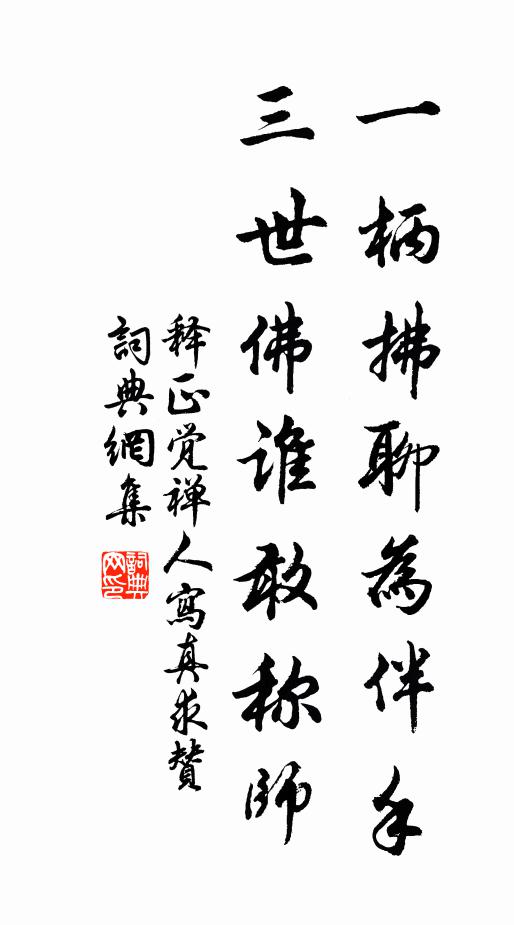 一柄拂聊為伴手
三世佛谁敢称師
释正觉禅人寫真求贊
詞典網集
詞典網印